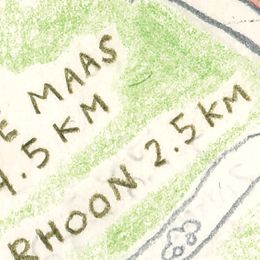 MAAS
4.5 KM
RHOON 2.5 KM